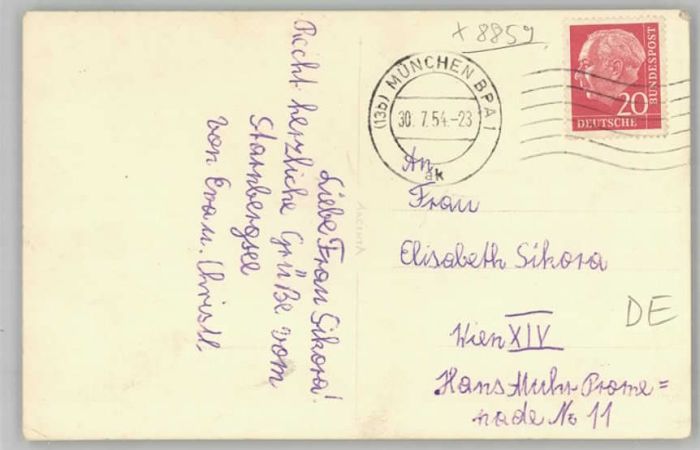 Liebe Frau Sikora!
Recht herzliche Grüße vom
Starnbergsee
von Eva u. Christl.
x 8859
(13b) MÜNCHEN BPA 1
30. 7. 54.-23
ak
20
DEUTSCHE
BUNDESPOST
An
Frau
Elisabeth Sikora
Wien XIV
Hans Muhr Prome=
nade No 11
DE